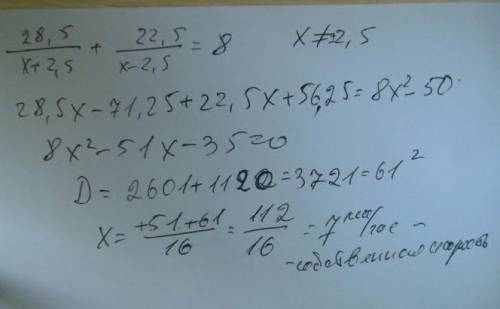 28,5/x+2,5 + 22,5/x-2,5 = 8    x≠2,5
28,5x-71,25+22,5x+56,25=8x²-50
8x²-51x-35=0
D=2601+1120=3721=61²
x=+51+61/16=112/16=7 км/час -
-собственная скорость